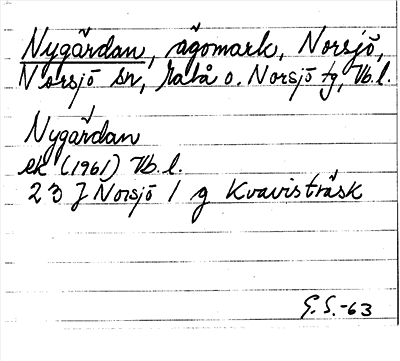 Nygärdan, ägomark, Norsjö,
Norsjö sn, Malå o. Norsjö tg, Vb.l.
Nygärdan
ek (1961) Vb.l.
23 J Norsjö 1 g Kvavisträsk
G.S.-63